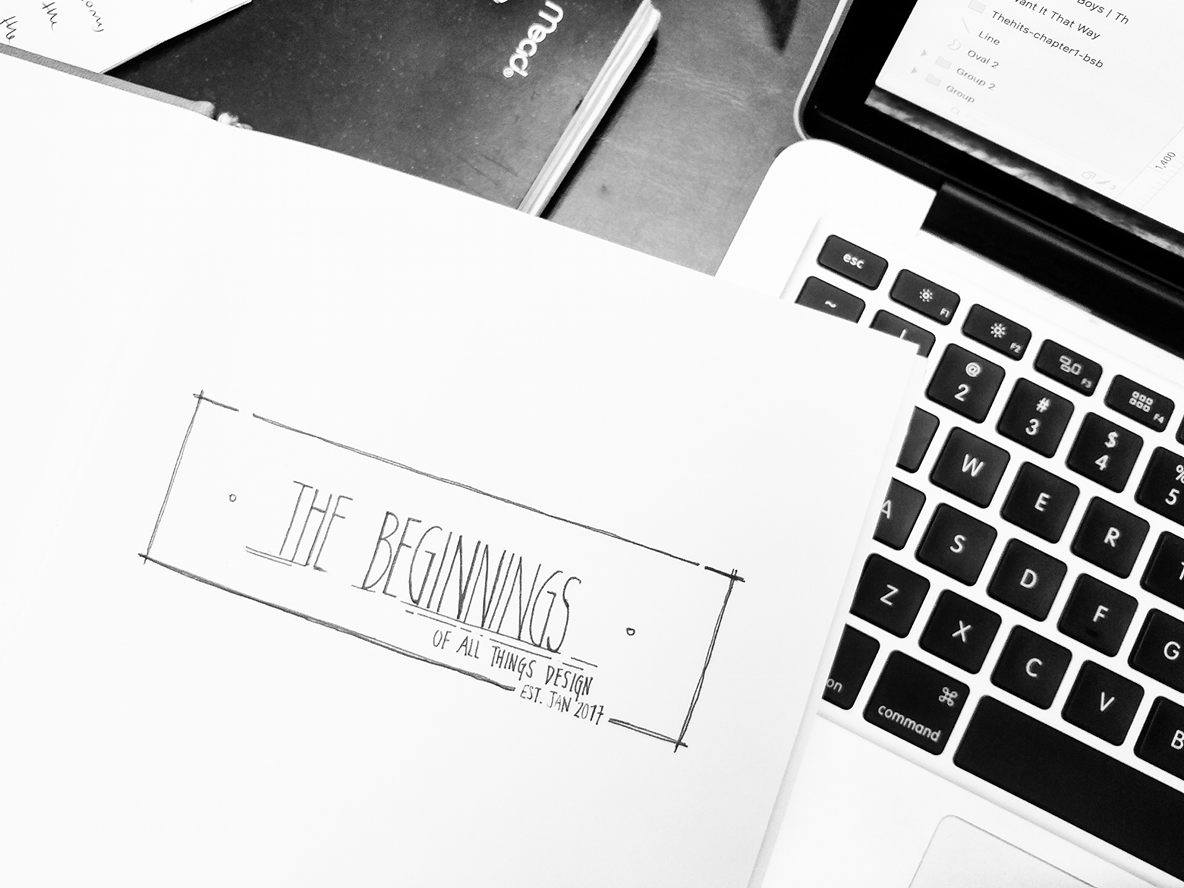 my
the
the
mead®
Boys | Th
ant It That Way
Thehits-chapter1-bsb
Line
Oval 2
Group 2
Group
1,400
THE BEGINNINGS
OF ALL THINGS DESIGN
EST. JAN 2017
esc
F1
F2
F3
F4
~
!
@
2
#
3
$
4
%
5
W
E
R
A
S
D
F
G
Z
X
C
V
B
on
⌘
command